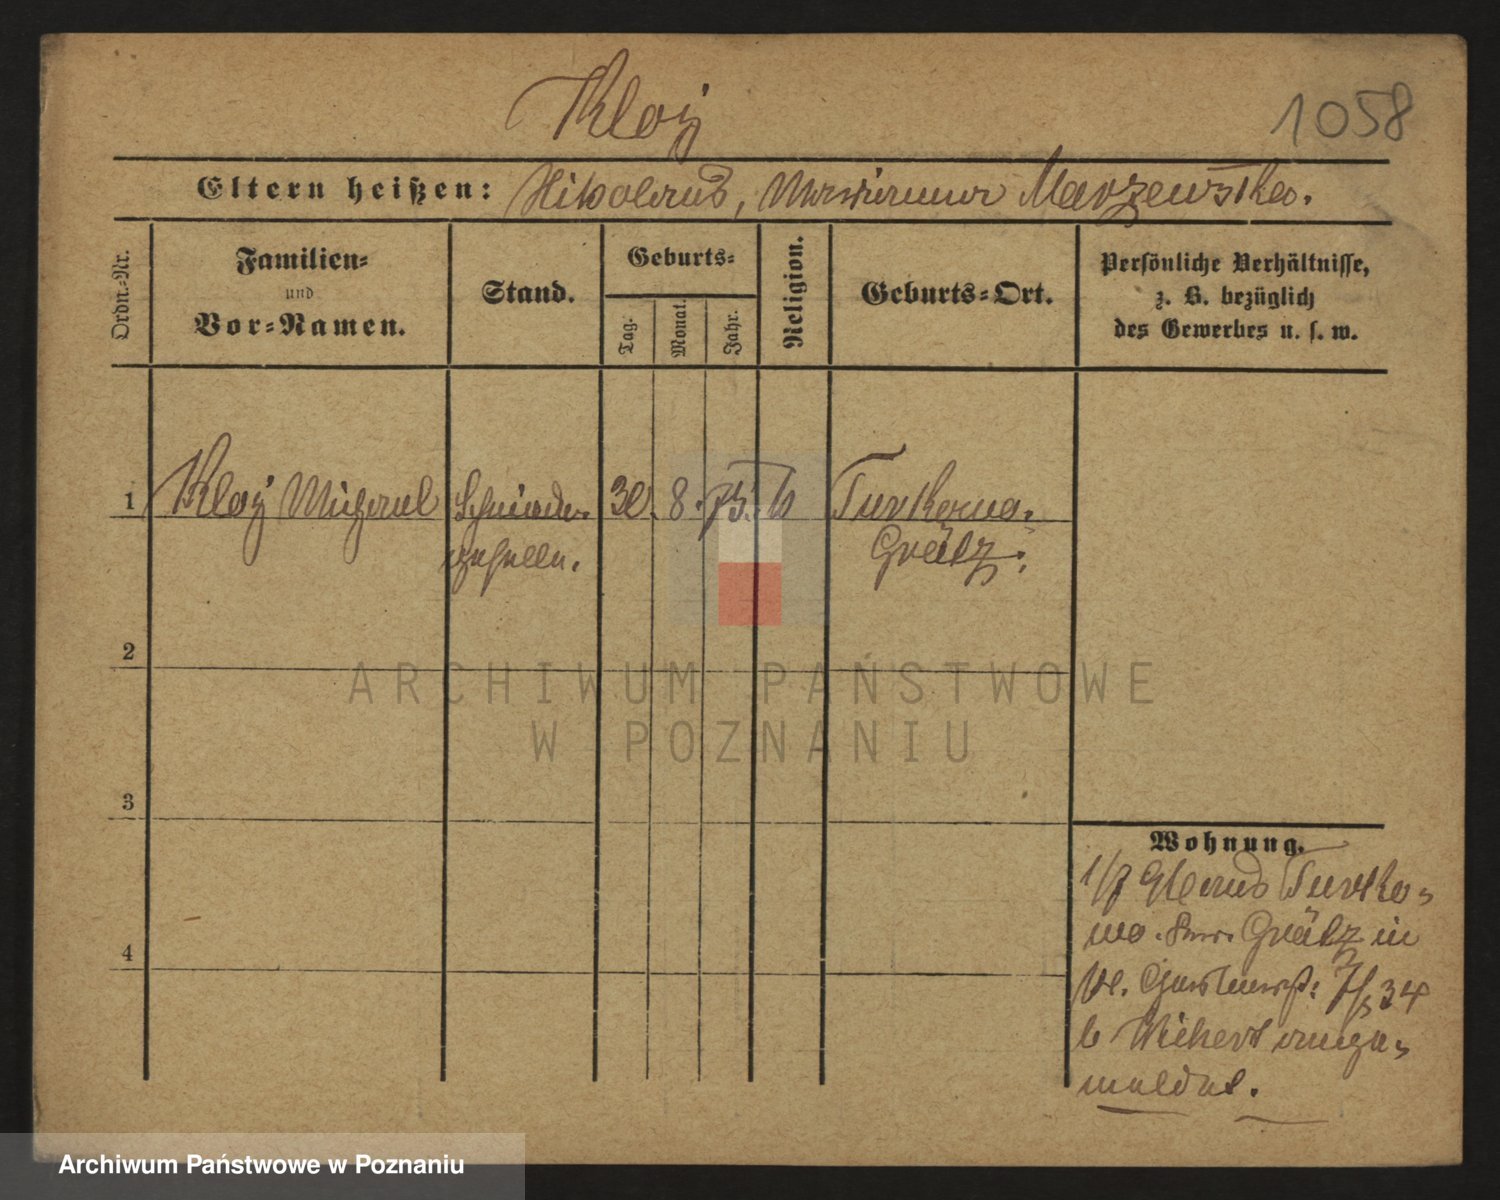 Kloy
1058
Eltern heißen: Nikolaus, Marianna Marzewska.
Ordn.-Nr.
Familien-
und
Vor-Namen.
Stand.
Geburts-
Tag.
Monat.
Jahr.
Religion.
Geburts-Ort.
Persönliche Verhältnisse,
z. B. bezüglich
des Gewerbes u. s. w.
1 Kloy Michael Schneider- 30. 8. 75. k Turkowo.
geselle. Grätz.
2
3
4
Wohnung.
1/7 aus Turko-
wo Grätz in
7/ 34
b Wichert ange-
meldet.
ARCHIWUM PAŃSTWOWE
W POZNANIU
Archiwum Państwowe w Poznaniu